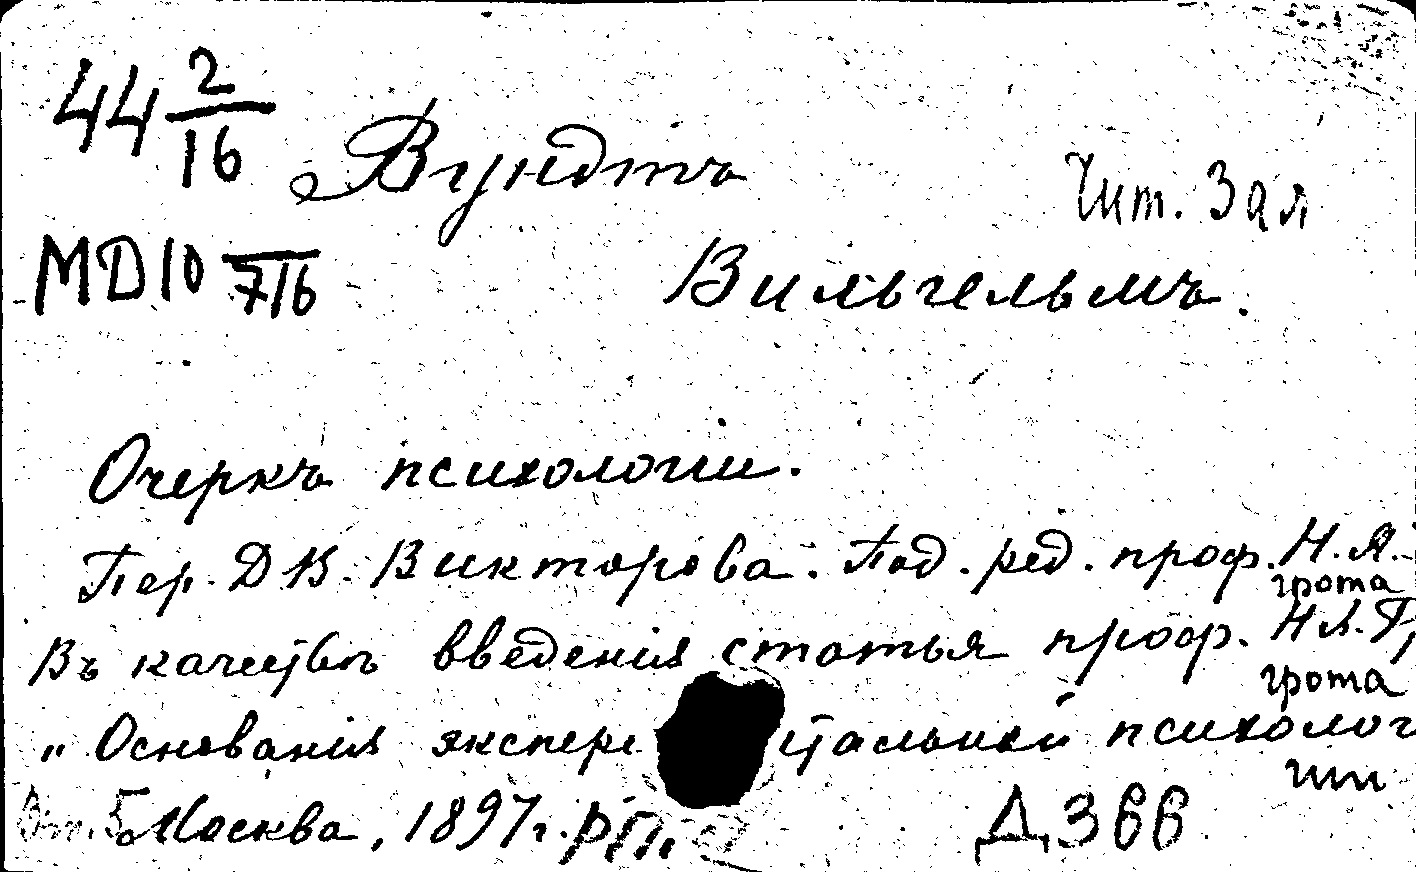 44 2/16
Вундтъ
Чит. Зал
MD10 /716
Вильгельмъ.
Очеркъ психологіи.
Пер. Д В. Викторова. Под. ред. проф. Н. Я.
грота
Въ качествѣ введенія статья проф. Н Я. Г
грота
„Основанія экспери тальной психолог
гіи
Москва, 1897 г.
Д 3 вв